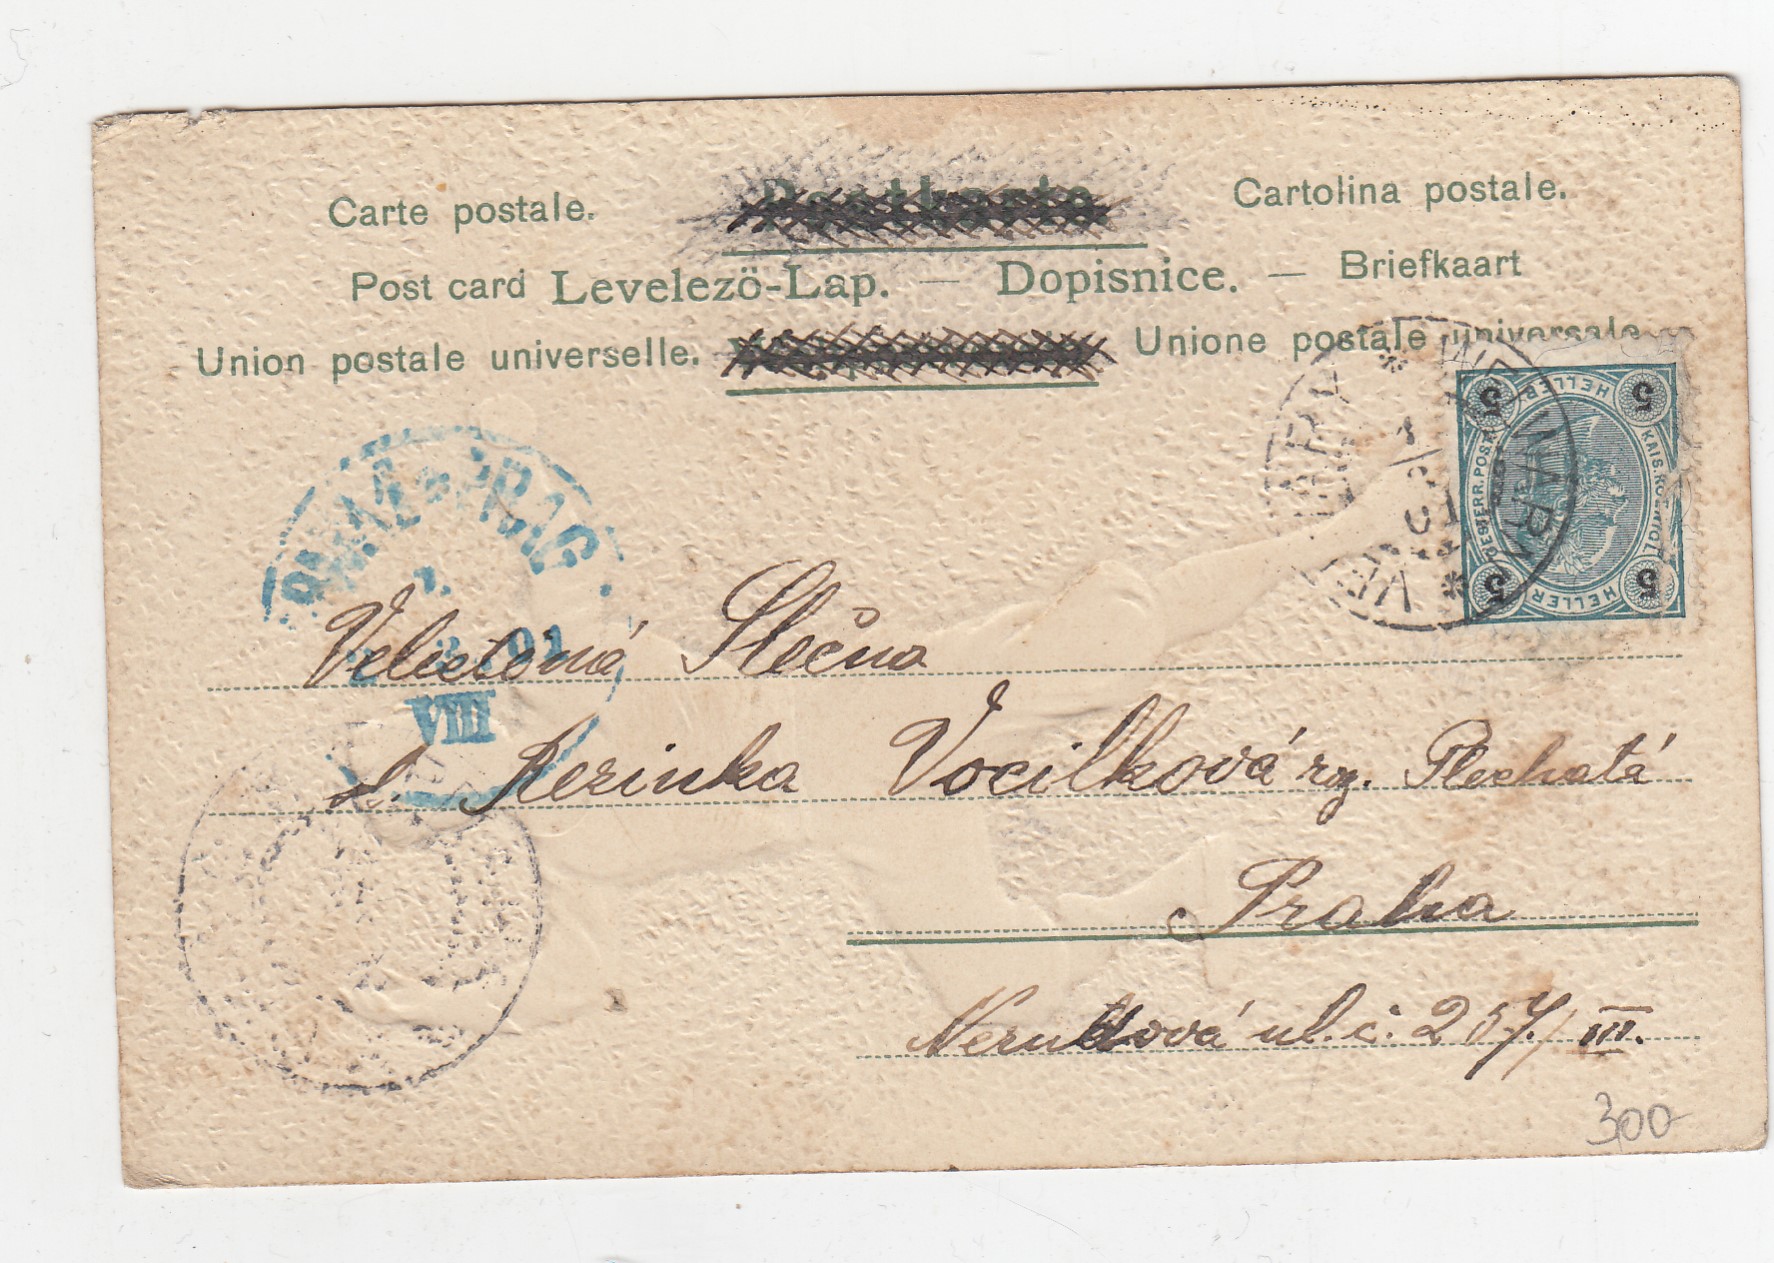 Carte postale. Postkarte Cartolina postale.
Post card Levelezö-Lap. — Dopisnice. — Briefkaart
Union postale universelle. Unione postale universale
5 HELLER 5
OESTERR. POST KAIS. KOENIGL.
5 HELLER 5
PRAHA PRAG
VIII
Velectěná Slečna
Rezinka Vocilková rz. Plechatá
Praha
Nerudová ul. č. 257/III.
300